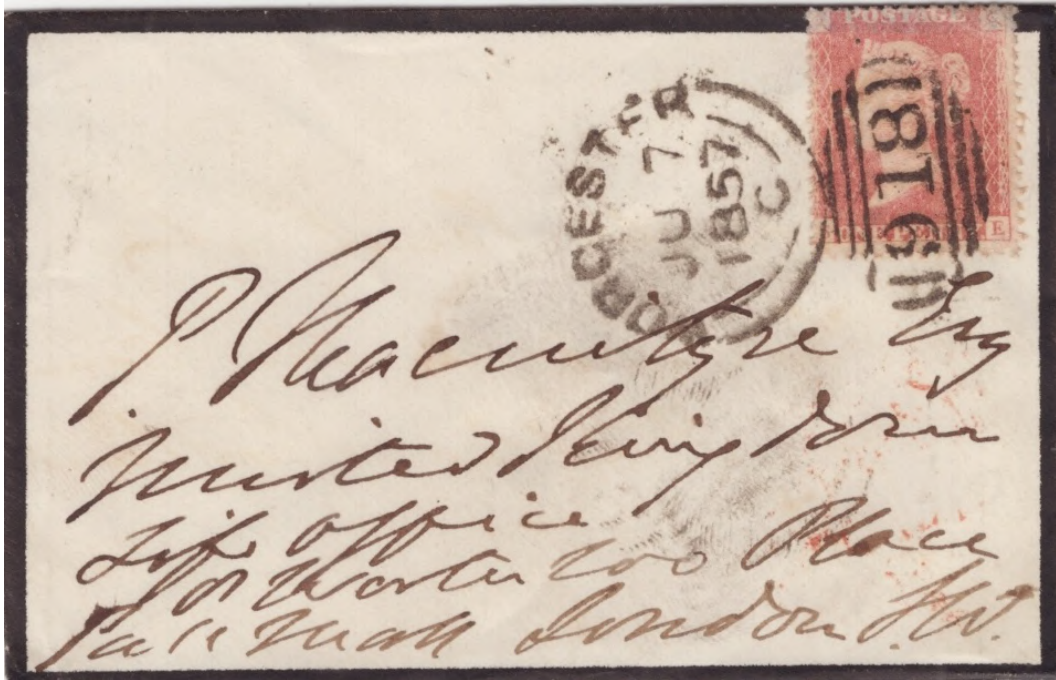 POSTAGE
WORCESTER
JU 7
1857
C
918
E
P Macintyre Esq
United Kingdom
Life Office
Waterloo Place
Pall Mall London S.W.